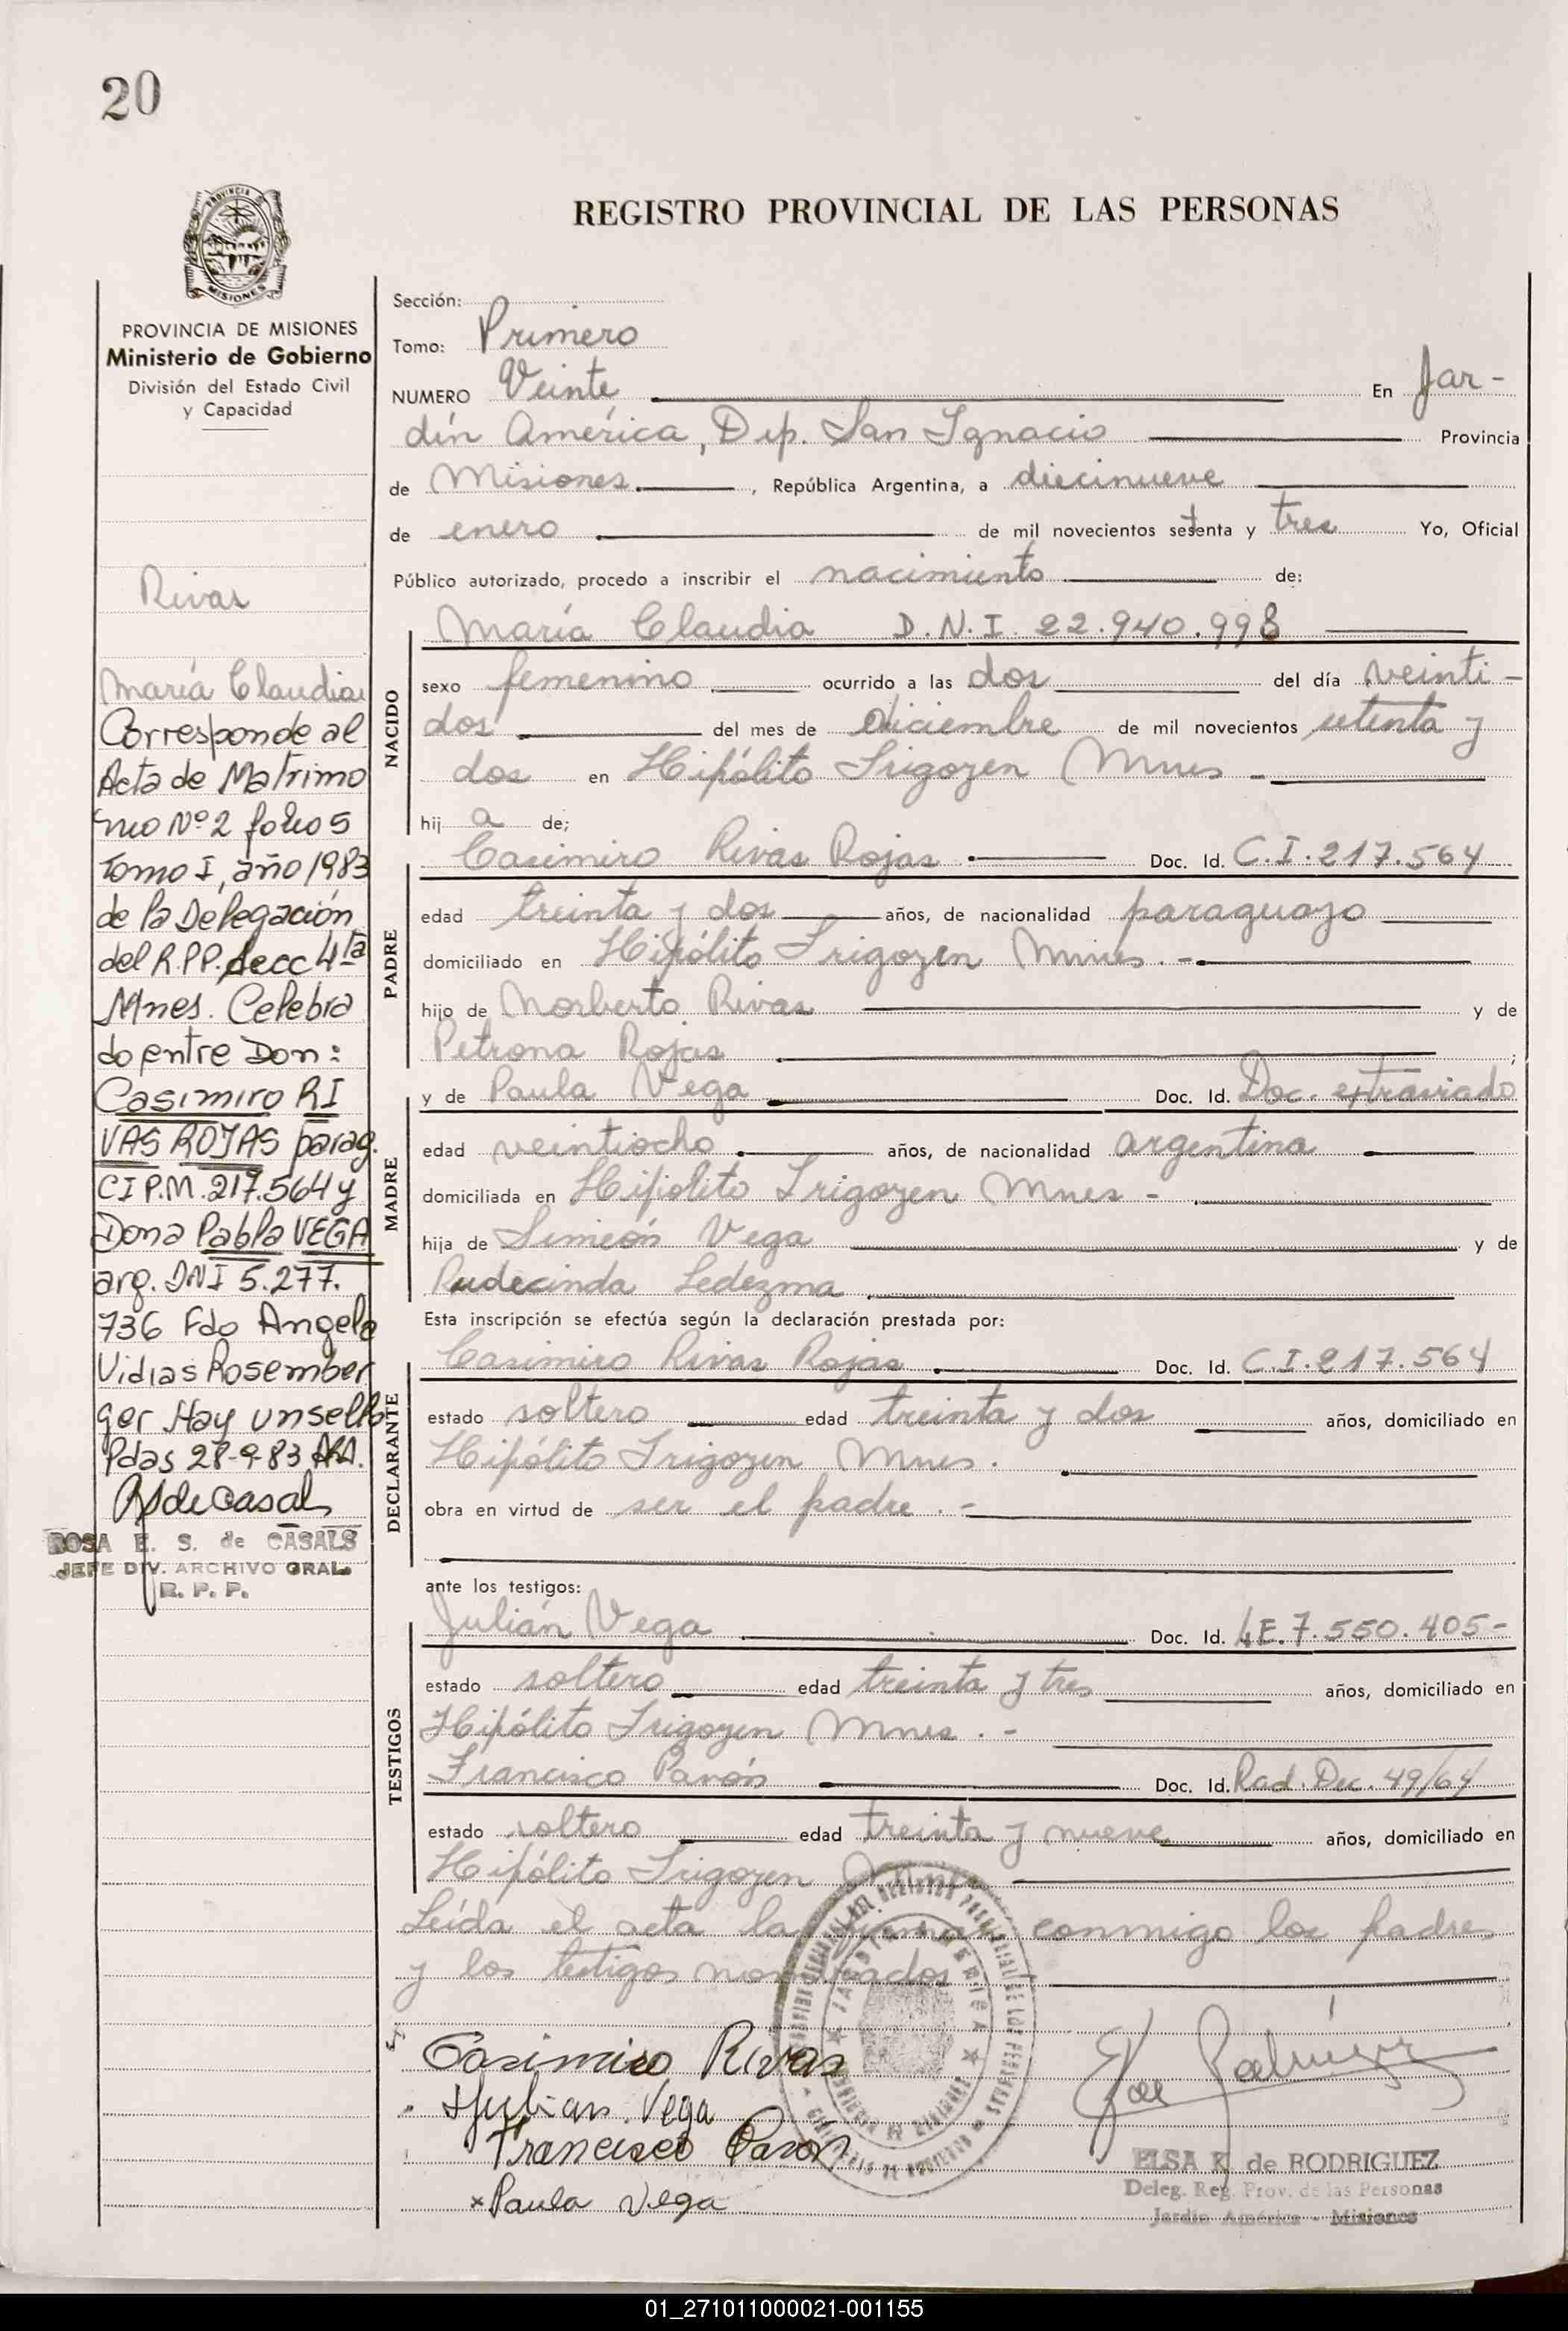 20
PROVINCIA
MISIONES
REGISTRO PROVINCIAL DE LAS PERSONAS
PROVINCIA DE MISIONES
Ministerio de Gobierno
División del Estado Civil
y Capacidad
Rivas
María Claudia
Corresponde al
Acta de Matrimo
nio Nº 2 folio 5
Tomo I, año 1983
de la Delegación
del R.P.P. Secc 4ta
Mnes. Celebra
do entre Don:
Casimiro RI
VAS ROJAS parag.
CI P.M. 217.564 y
Dona Pabla VEGA
arg. DNI 5.277.
736 Fdo Angela
Vidias Rosember
ger Hay un sello
Pdas 28-9-83
RSdeCasals
ROSA E. S. de CASALS
JEFE DIV. ARCHIVO GRAL.
R. P. P.
Sección:
Tomo: Primero
NUMERO Veinte En Jar-
dín América, Dep. San Ignacio Provincia
de Misiones, República Argentina, a diecinueve
de enero de mil novecientos setenta y tres Yo, Oficial
Público autorizado, procedo a inscribir el nacimiento de:
María Claudia D.N.I. 22.940.998
NACIDO
sexo femenino ocurrido a las dos del día veinti-
dos del mes de diciembre de mil novecientos setenta y
dos en Hipólito Irigoyen Mnes -
hij a de;
Casimiro Rivas Rojas Doc. Id. C.I. 217.564
PADRE
edad treinta y dos años, de nacionalidad paraguayo
domiciliado en Hipólito Irigoyen Mnes. -
hijo de Norberto Rivas y de
Petrona Rojas ;
y de Paula Vega Doc. Id. Doc. extraviado
MADRE
edad veintiocho años, de nacionalidad argentina
domiciliada en Hipólito Irigoyen Mnes -
hija de Simeón Vega y de
Rudecinda Ledezma
Esta inscripción se efectúa según la declaración prestada por:
Casimiro Rivas Rojas Doc. Id. C.I. 217.564
DECLARANTE
estado soltero edad treinta y dos años, domiciliado en
Hipólito Irigoyen Mnes.
obra en virtud de ser el padre. -
ante los testigos:
Julián Vega Doc. Id. L.E. 7.550.405-
TESTIGOS
estado soltero edad treinta y tres años, domiciliado en
Hipólito Irigoyen Mnes. -
Francisco Pavón Doc. Id. Rad. Dec. 49/64
estado soltero edad treinta y nueve años, domiciliado en
Hipólito Irigoyen Mnes
Leída el acta la firman conmigo los padres
y los testigos nombrados
Casimiro Rivas
Julian Vega
Francisco Pavón
x Paula Vega
JARDIN AMERICA
ELSA K. de RODRIGUEZ
Deleg. Reg. Prov. de las Personas
Jardín América - Misiones
01_271011000021-001155